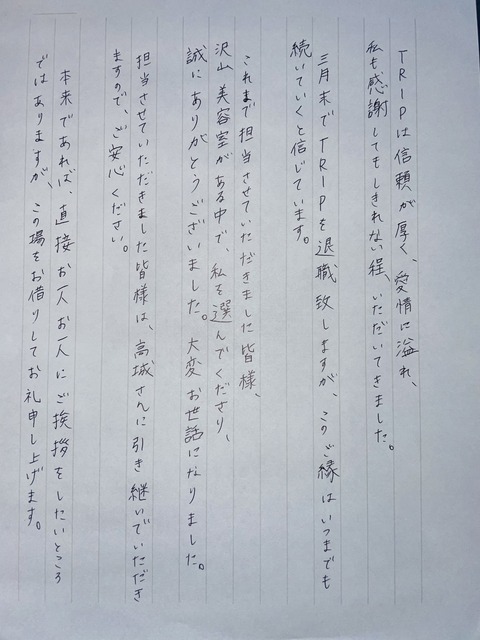 TRIPは信頼が厚く、愛情に溢れ、
私も感謝してもしきれない程、いただいてきました。
三月末でTRIPを退職致しますが、このご縁はいつまでも
続いていくと信じています。
これまで担当させていただきました皆様、
沢山美容室がある中で、私を選んでくださり、
誠にありがとうございました。大変お世話になりました。
担当させていただきました皆様は、高城さんに引き継いでいただき
ますので、ご安心ください。
本来であれば、直接お一人お一人にご挨拶をしたいところ
ではありますが、この場をお借りしてお礼申し上げます。